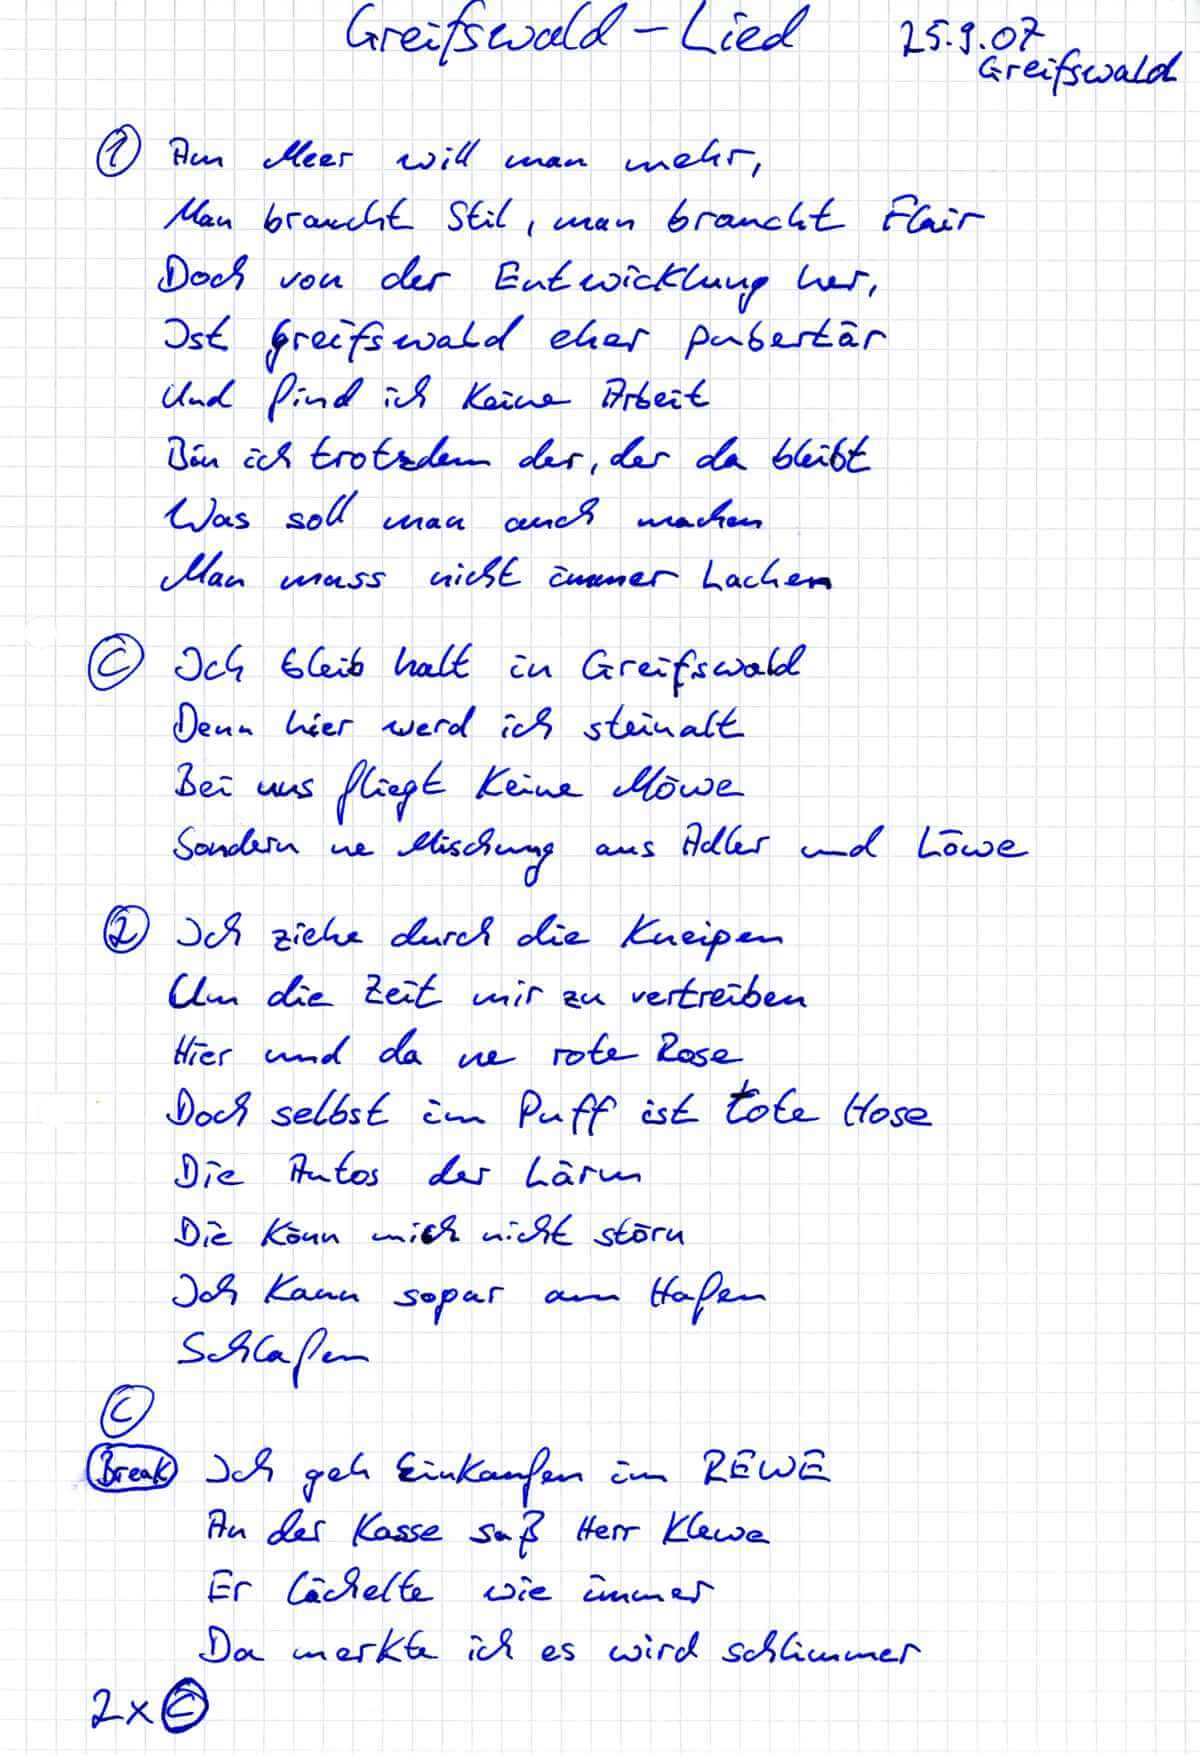 Greifswald – Lied 25.9.07
Greifswald
① Am Meer will man mehr,
Man braucht Stil, man braucht Flair
Doch von der Entwicklung her,
Ist Greifswald eher pubertär
Und find ich keine Arbeit
Bin ich trotzdem der, der da bleibt
Was soll man auch machen
Man muss nicht immer Lachen
Ⓒ Ich bleib halt in Greifswald
Denn hier werd ich steinalt
Bei uns fliegt keine Möwe
Sondern ne Mischung aus Adler und Löwe
② Ich ziehe durch die Kneipen
Um die Zeit mir zu vertreiben
Hier und da ne rote Rose
Doch selbst im Puff ist tote Hose
Die Autos der Lärm
Die könn mich nicht störn
Ich kann sogar am Hafen
Schlafen
Ⓒ
Break Ich geh Einkaufen im REWE
An der Kasse saß Herr Klewe
Er lächelte wie immer
Da merkte ich es wird schlimmer
2x Ⓒ